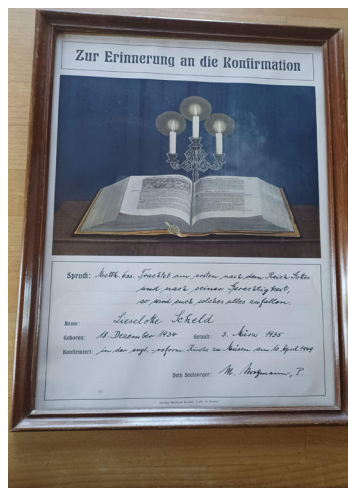 Zur Erinnerung an die Konfirmation
Spruch: Matth. 6,33. Trachtet am ersten nach dem Reich Gottes
und nach seiner Gerechtigkeit,
so wird euch solches alles zufallen.
Name: Lieselotte Scheld
Geboren: 18. Dezember 1934 Getauft: 3. März 1935
Konfirmiert: in der evgl.-reform. Kirche zu am 10. April 1949
Dein Seelsorger: M. P.